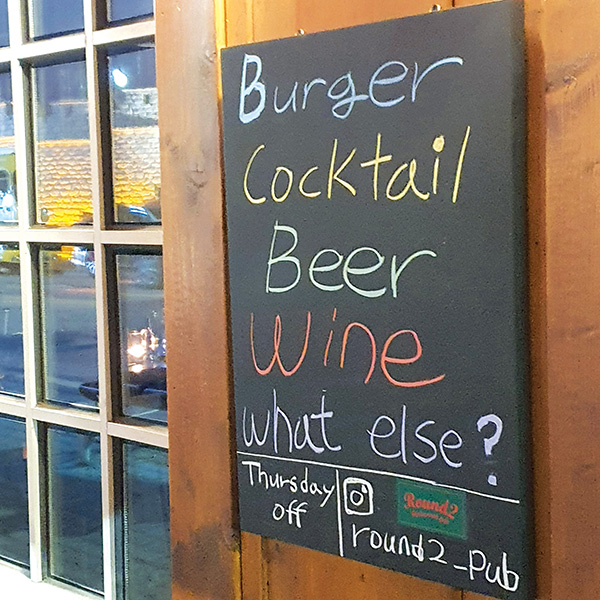 Burger
Cocktail
Beer
Wine
what else?
Thursday
off
Round2
round2_pub